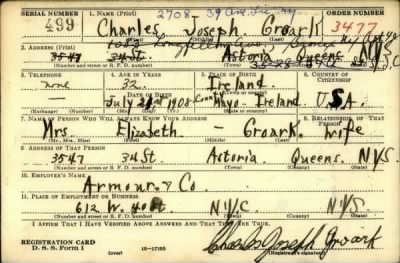 SERIAL NUMBER 1. NAME (Print) 2708 39 Ave ORDER NUMBER
499 Charles Joseph Groark 3477
(First) (Middle) (Last)
2. ADDRESS (Print) 1083 Longfellow Ave. Bronx N.Y.S.
3547 34 St. Astoria Queens N.Y.S.
(Number and street or R. F. D. number) (Town) (County) (State)
3. TELEPHONE 4. AGE IN YEARS 5. PLACE OF BIRTH 6. COUNTRY OF CITIZENSHIP
none 32 Ireland
DATE OF BIRTH (Town or county)
July 1908 Mayo Ireland U.S.A.
(Exchange) (Number) (Mo.) (Day) (Yr.) (State or country)
7. NAME OF PERSON WHO WILL ALWAYS KNOW YOUR ADDRESS 8. RELATIONSHIP OF THAT PERSON
Mrs. Elizabeth – Groark. Wife
(Mr., Mrs., Miss) (First) (Middle) (Last)
9. ADDRESS OF THAT PERSON
3547 34 St. Astoria Queens. N.Y.S.
(Number and street or R. F. D. number) (Town) (County) (State)
10. EMPLOYER'S NAME
Armour & Co.
11. PLACE OF EMPLOYMENT OR BUSINESS
612 W. 40 St. N.Y.C. N.Y.S.
(Number and street or R. F. D. number) (Town) (County) (State)
I AFFIRM THAT I HAVE VERIFIED ABOVE ANSWERS AND THAT THEY ARE TRUE.
REGISTRATION CARD
D. S. S. Form 1 (over) 16—17105 Charles Joseph Groark
(Registrant's signature)